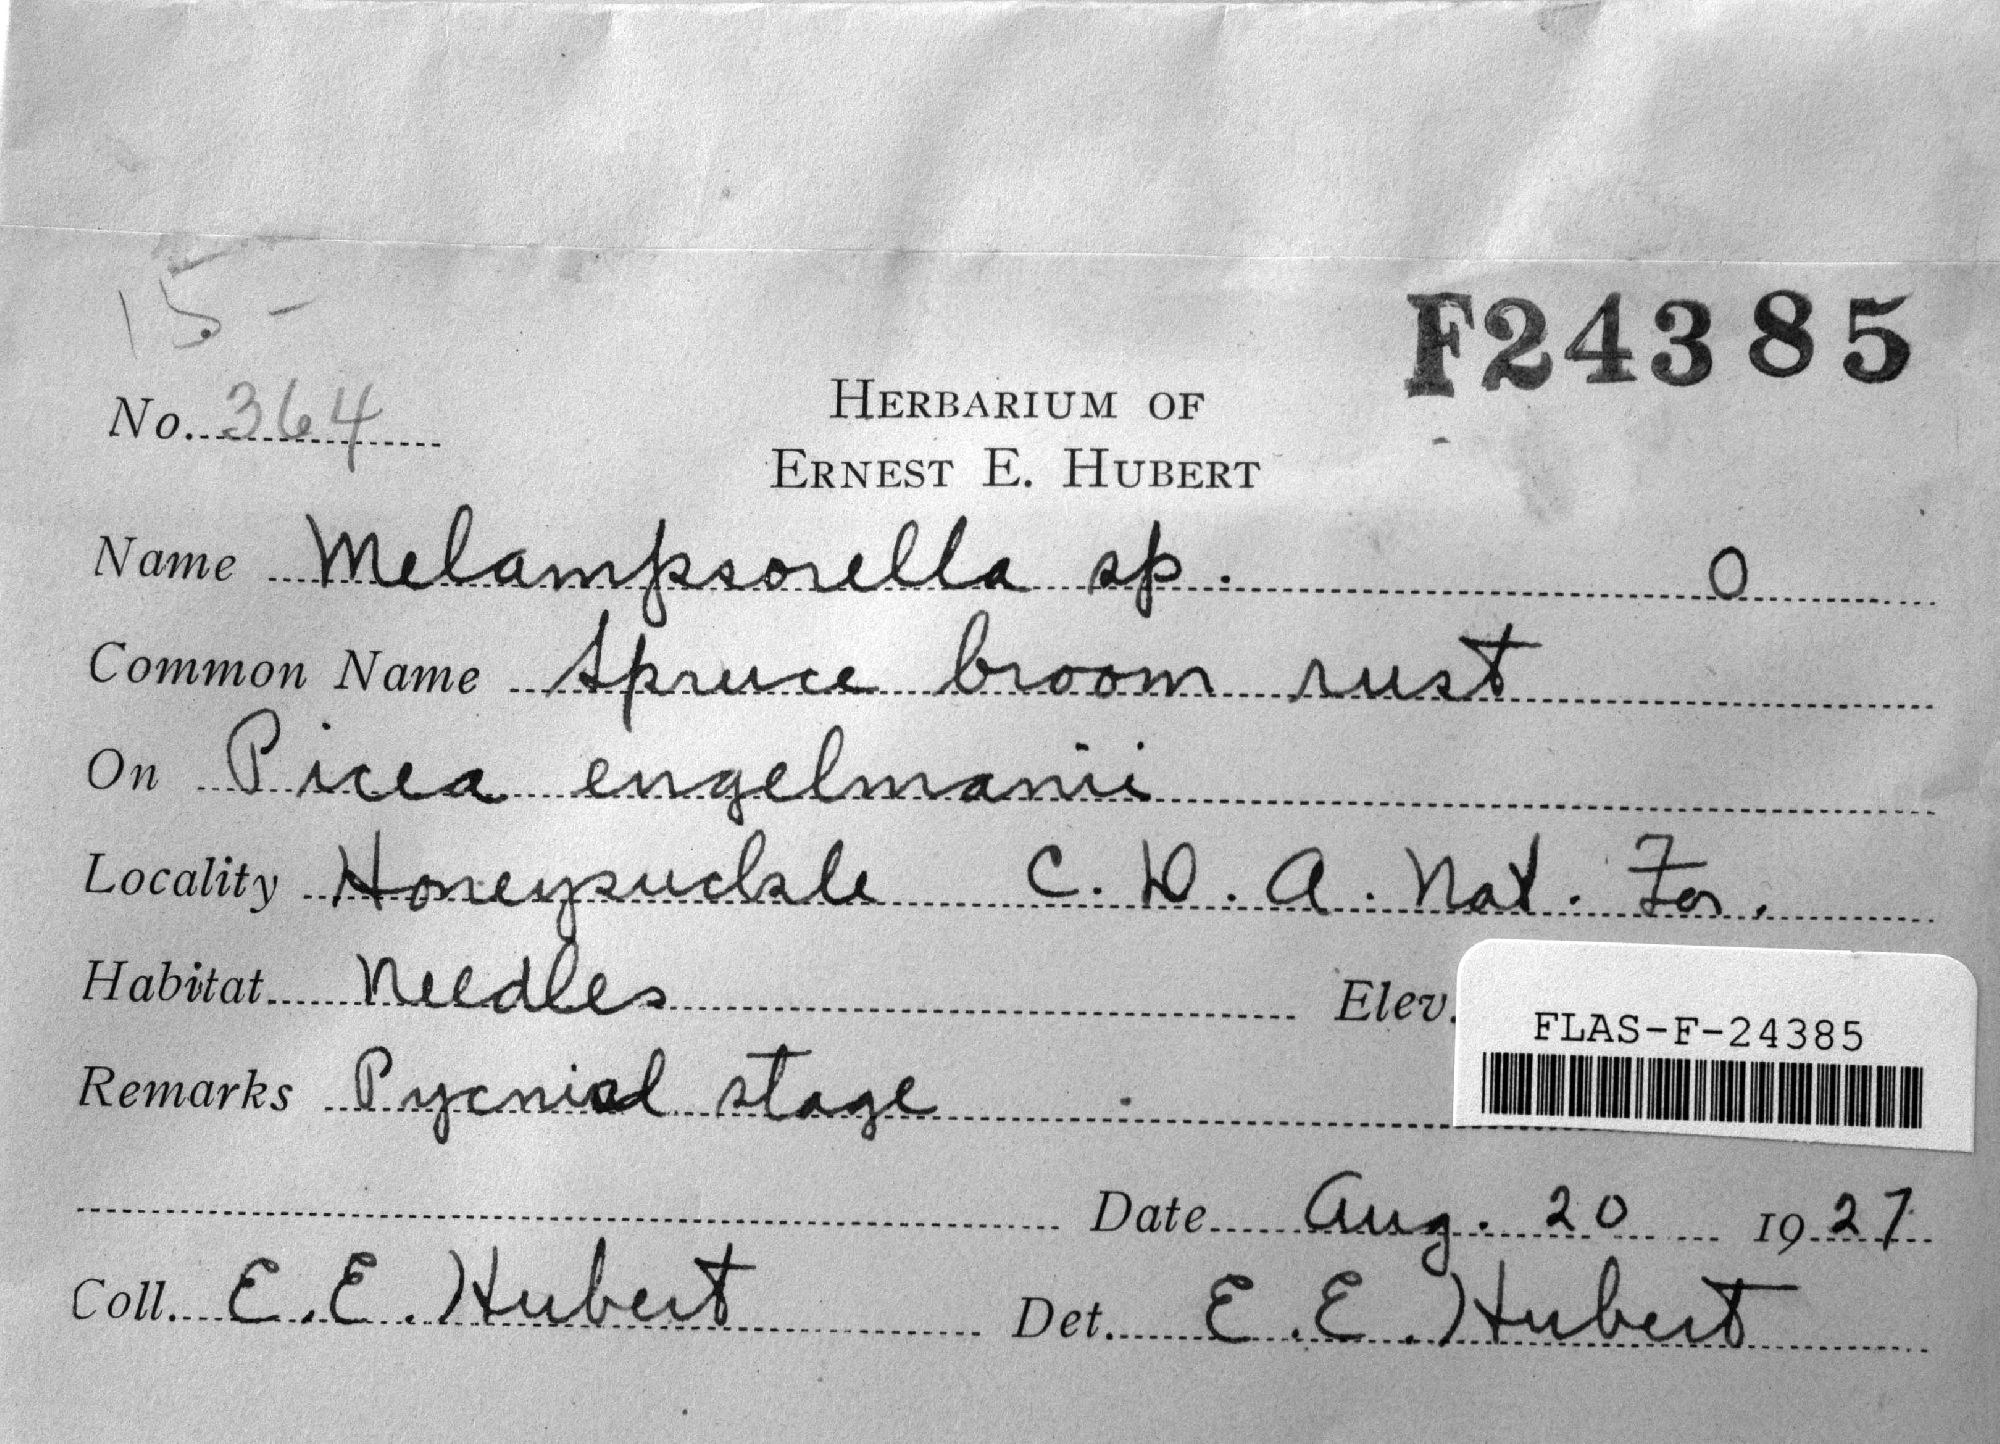 15-
F24385
No. 364
HERBARIUM OF
ERNEST E. HUBERT
Name Melampsorella sp. O
Common Name Spruce broom rust
On Picea engelmanii
Locality Honeysuckle C. D. A. Nat. For.
Habitat Needles Elev.
FLAS-F-24385
Remarks Pycnial stage
Date Aug. 20 1927
Coll. E. E. Hubert Det. E. E. Hubert